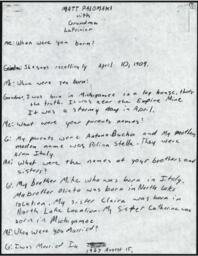 MATT PALOMAKI
with
Grandma
Me: When were you born?
She says April 10, 1909.
Me: Where were you born?
Grandma: I was born in Michigamme in a log house, thats
the truth. It was near the Empire Mine.
It was a stormy day in April.
Me: What were your parents names?
G: My parents were and my mothers
maden name was Stella. They were
from Italy.
Me: What were the names of your brothers and
sisters?
G: My Brother Mike who was born in Italy.
My Brother was born in North Lake
location. My sister Clara was born in
North Lake Location. My Sister Catherine was
born in Michigamme
Me: When were you Married?
G: I was Married In
1927 August 15,